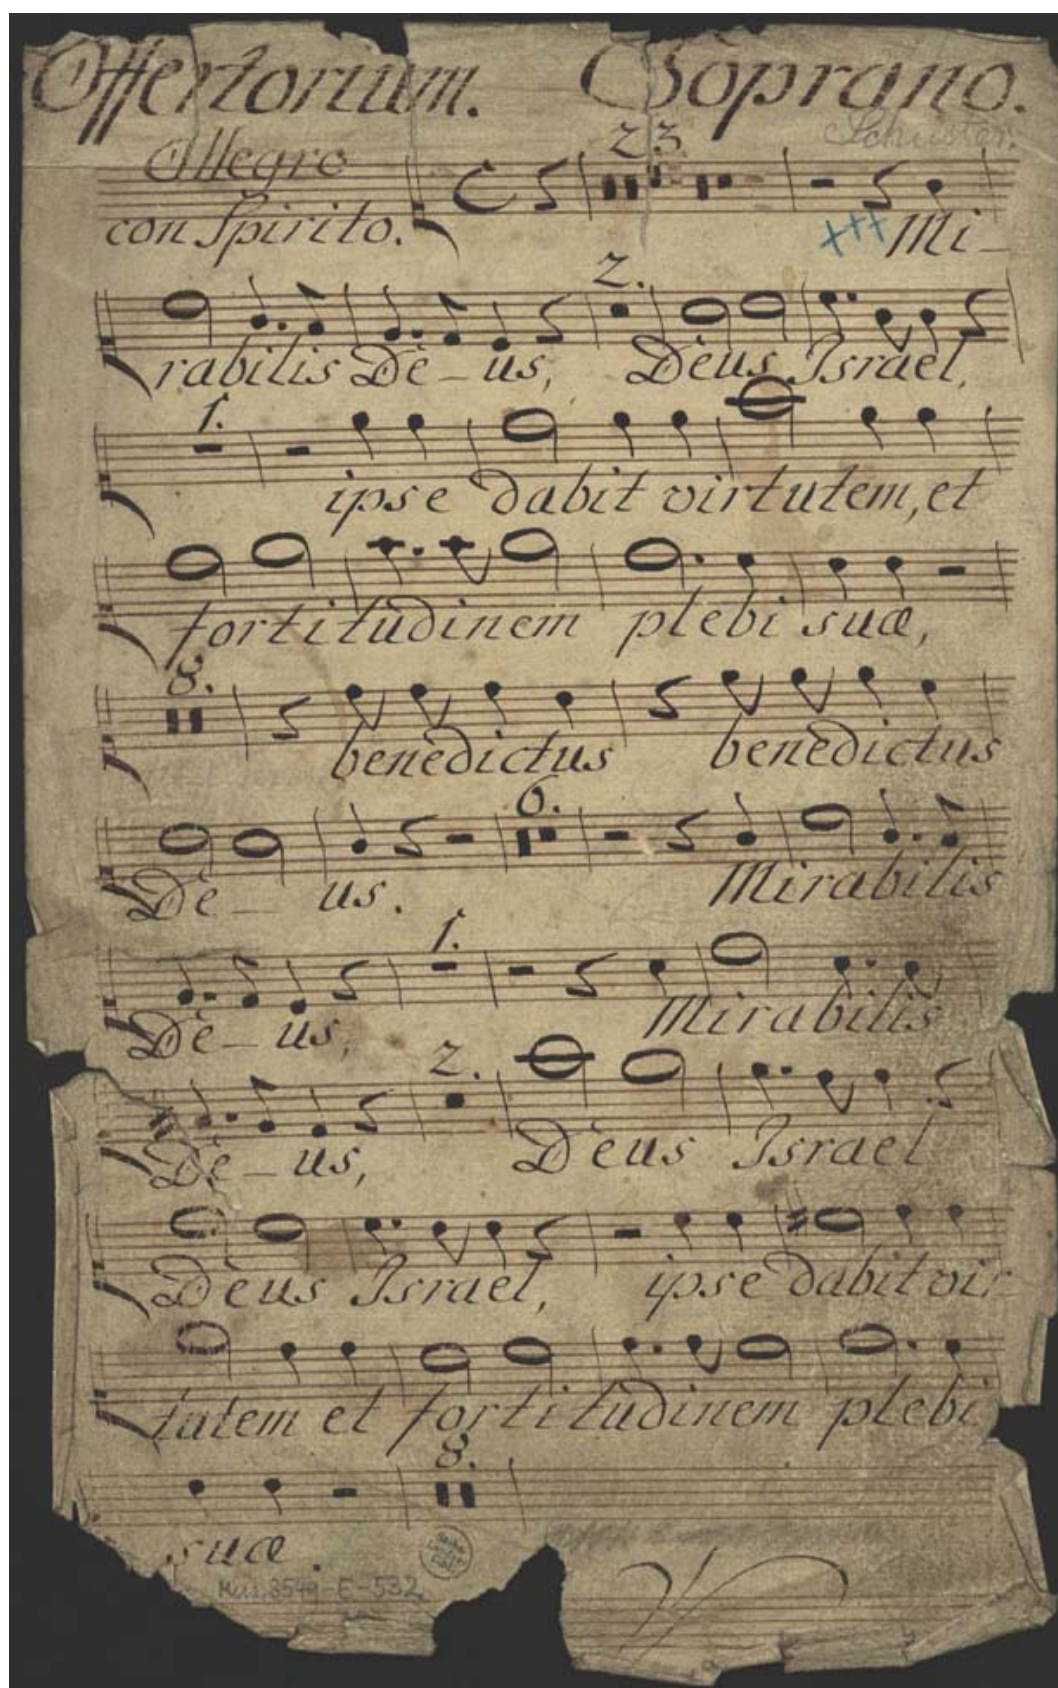 Offertorium. Soprano.
Schuster.
Allegro 23
con Spirito. +++ Mi-
2.
rabilis De-us, Deus Israel,
1.
ipse dabit virtutem, et
fortitudinem plebi suæ,
8.
benedictus benedictus
6.
De- us. Mirabilis
1.
De-us, Mirabilis
2.
De-us, Deus Israel
Deus Israel, ipse dabit vir-
tutem et fortitudinem plebi
8.
suæ.
Mus. 3549-E-532